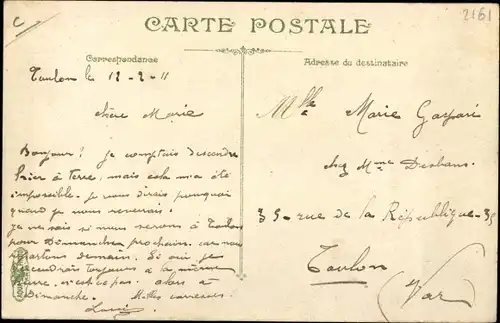 CARTE POSTALE
2161
Correspondance
Adresse du destinataire
Toulon le 12-2-11
Chère Marie
Bonjour! je comptais descendre
hier à terre, mais cela m'a été
impossible. Je vous dirais pourquoi
quand je vous reverrai.
je ne sais si nous serons à Toulon
pour Dimanche prochain, car nous
partons demain. Si oui, je
viendrais toujours à la même
heure, n'est-ce pas. alors à
Dimanche. Milles caresses.
Louis
Mlle Marie Gaspari
chez Mme Deshans
35 - rue de la République - 35
Toulon
(Var)